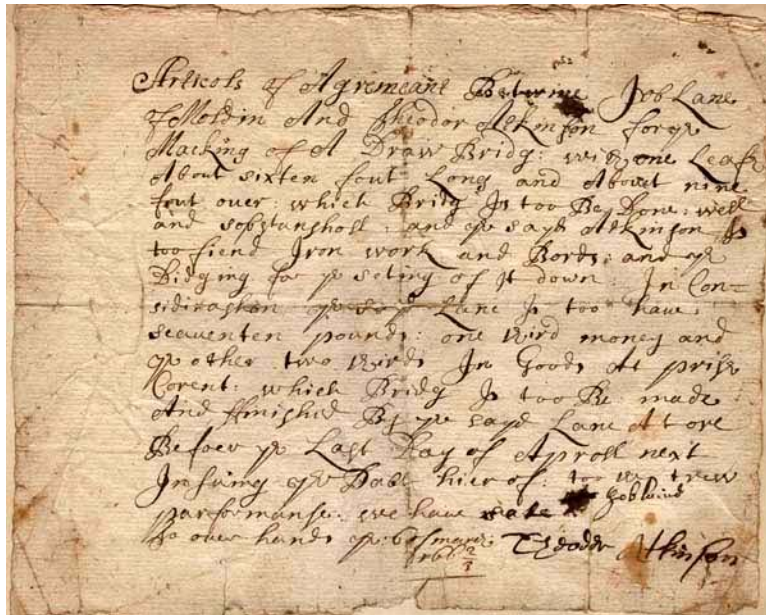 Articols of Agremeant Betwine Job Lane
of Moldin And Theodor Atkinson for ye
Macking of A Draw Bridg: with one Leafe
About sixten fout Long and About nine
fout over: which Bridg Is too Be Done: well
and sobstanshall: and ye sayd Atkinson Is
too fiend Iron work and Bords: and ye
Diging for ye seting of It down: In Con-
sidirashon ye sayd Lane Is too have
seaventen pounds: one third money and
ye other two thirds In Goods At prise
Corent: which Bridg Is too Be made
And ffinished By ye sayd Lane At ore
Befoer ye Last Day of Aproll next
Insuing ye Date hier of: too ye trew
parformanse: we have
to ouer hands ye: Theodor Atkinson